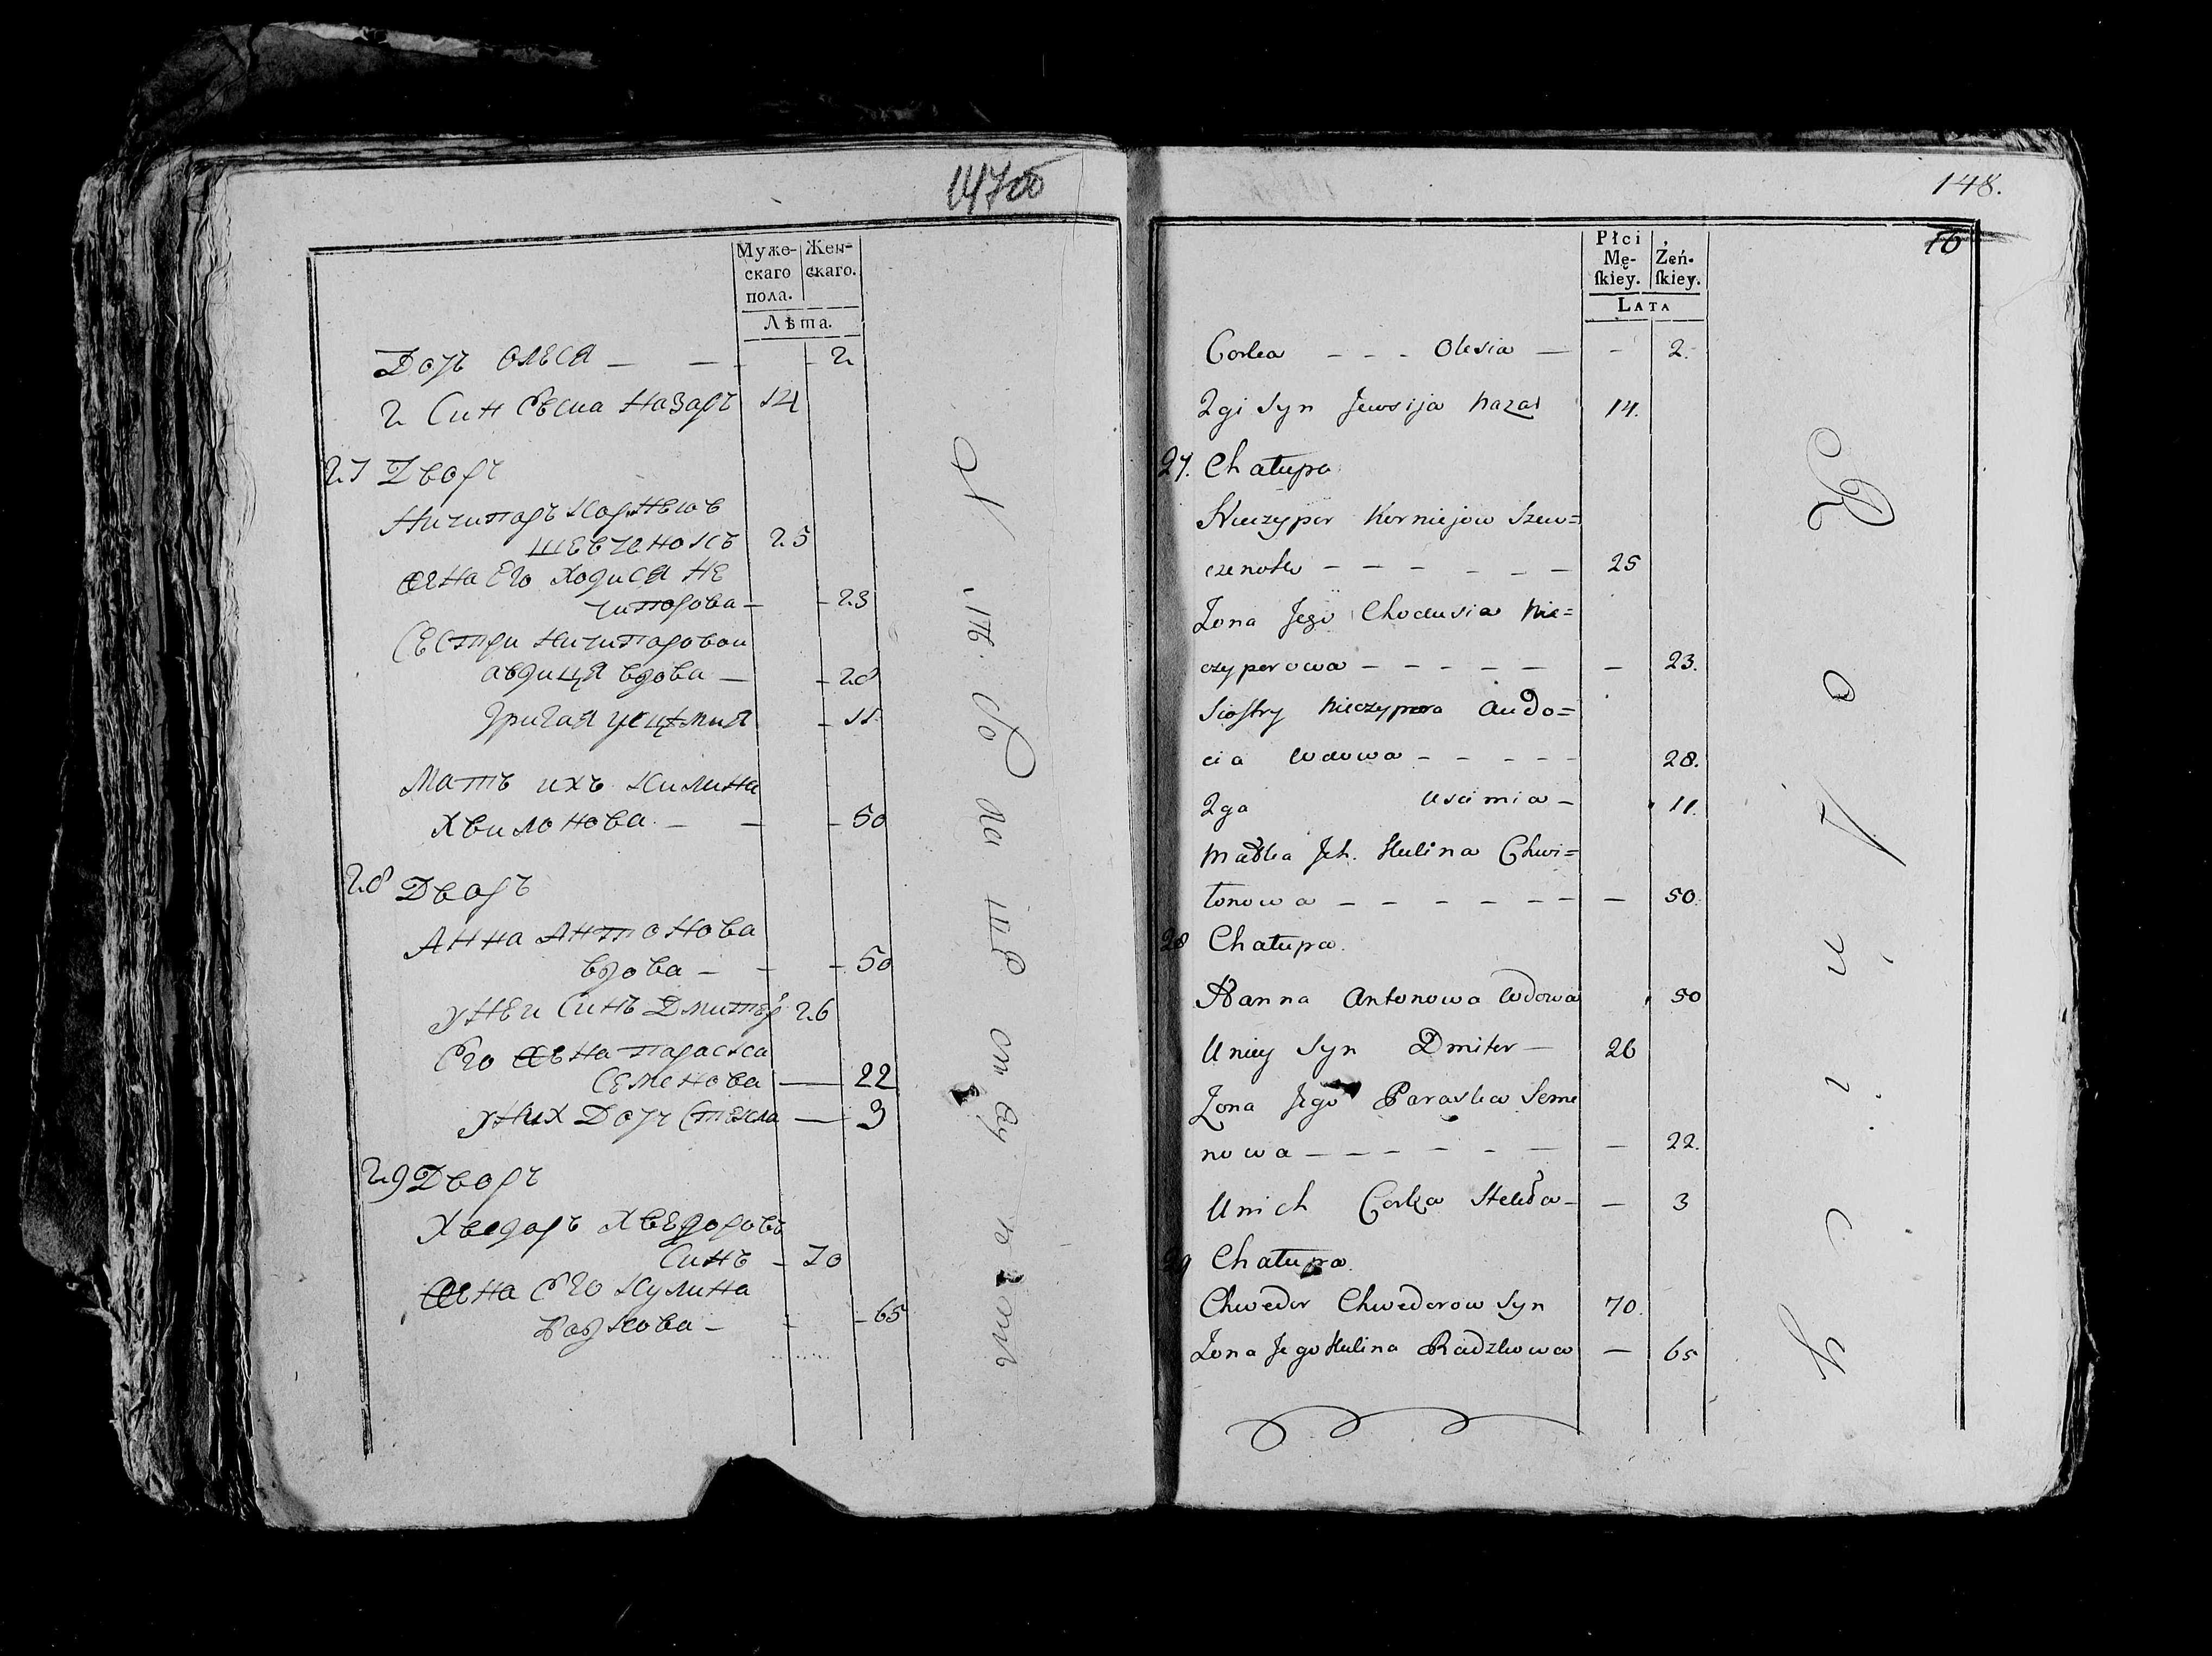 147об
Муже-
скаго
пола.
Жен-
скаго.
Лѣта.
Дочъ Олеся — — - 2
2 Син Евсиа Назаръ 14
27 Дворъ
Ничипоръ Корнеювъ
Шевченокъ 25
Жена Его Ходися Не
чипорова — - 23
Сестри Ничипоровои
авдиця вдова — - 28
Матъ ихъ Килина
Хвилонова — — - 50
28 Дворъ
Анна Антонова
вдова — — - 50
У неи Синъ Дмитеръ 26
Его Жена Параска
Семенова — 22
У них Дочъ Стекла — 3
29 Дворъ
Хведоръ Хведоровъ
Синъ - 70
Жена Его Кулина
- 65
148.
16
Płci
Mę-
ſkiey.
Żeń-
ſkiey.
LATA
Corka - - - Olesia — - 2.
2gi Syn Jewsija Nazar 14.
27. Chałupa
Nieczypor Korniejow Szew=
czenok — — — — — — 25
Zona Jego Chodusia Nie=
czyporowa — — — — — — 23.
Siostry Nieczypora Audo=
cia Wdowa — — — — — 28.
2ga Uscimia — 11.
Matka Ich. Kulina Chwi=
łonowa — — — — — — — 50.
28 Chałupa.
Hanna Antonowa Wdowa 50
Uniey Syn Dmiter — 26
Zona Jego Paraska Seme
nowa — — — — — — — 22.
Unich Corka Stekła — — 3
29 Chałupa.
Chwedor Chwedorow Syn 70.
Zona Jego Kulina Radzkowa — 65